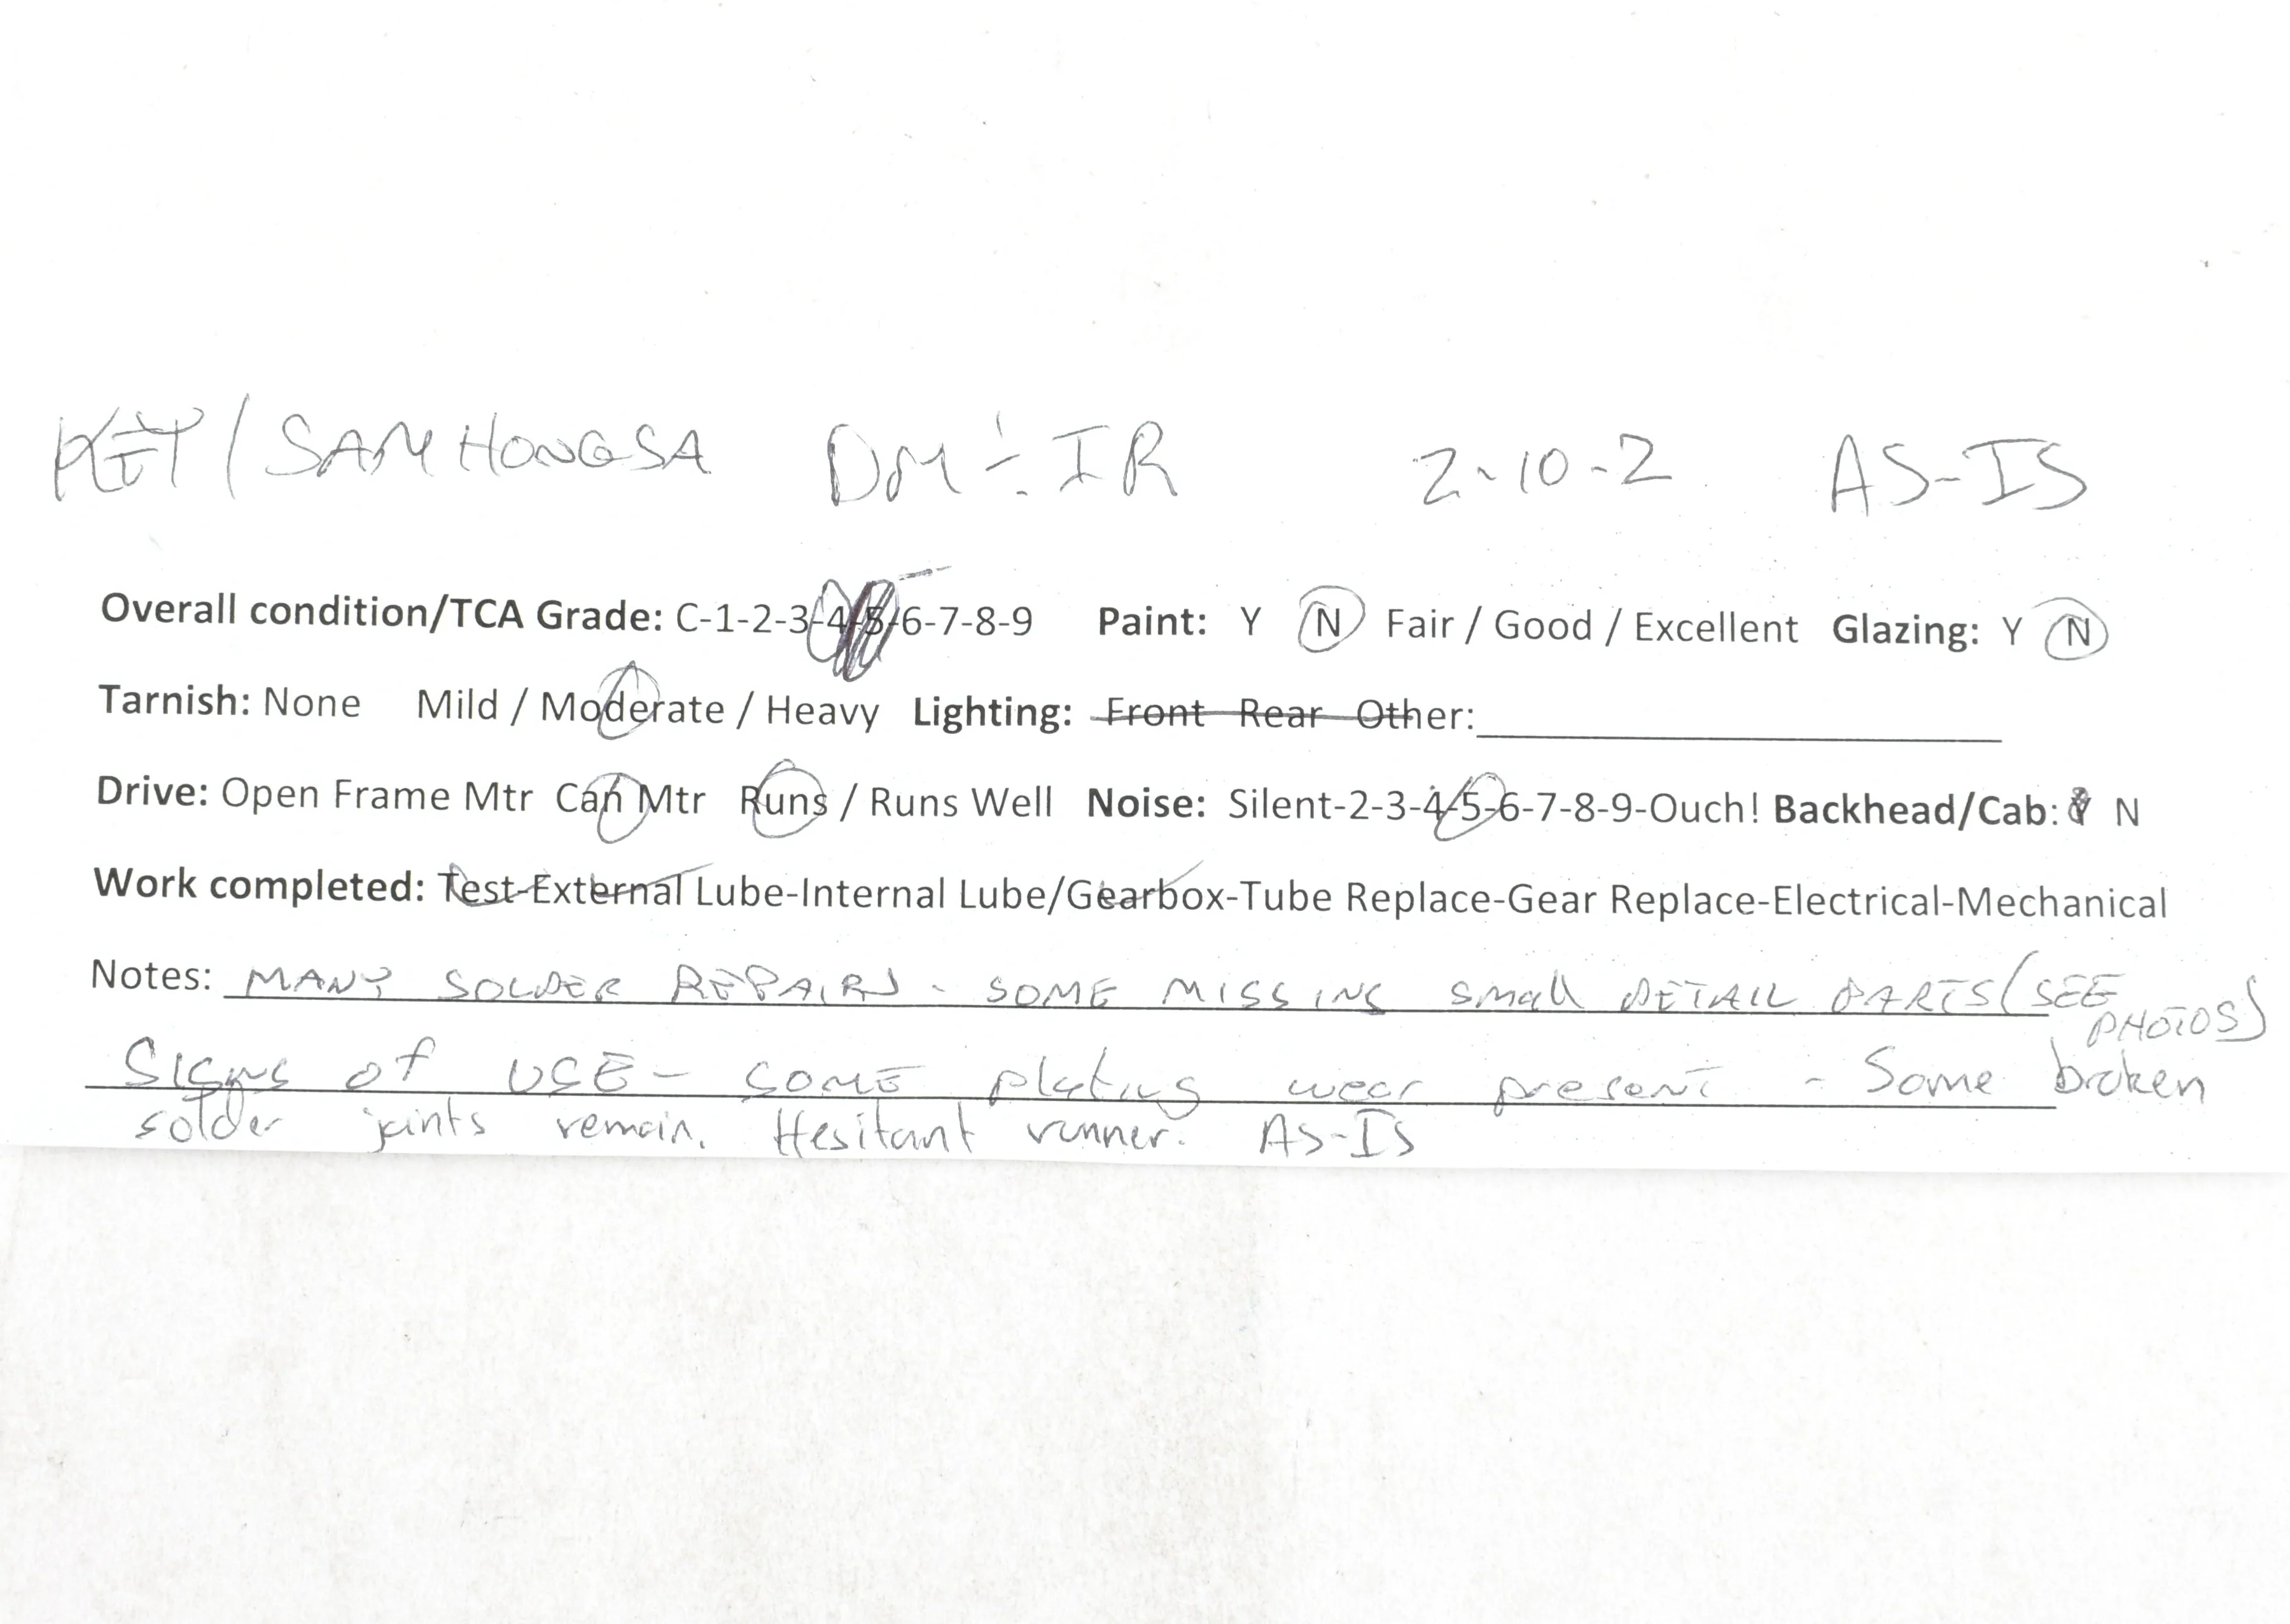 KEY / SAMHONGSA DM÷IR 2-10-2 AS-IS
Overall condition/TCA Grade: C-1-2-3-4-5-6-7-8-9 Paint: Y N Fair / Good / Excellent Glazing: Y N
Tarnish: None Mild / Moderate / Heavy Lighting: Front Rear Other:
Drive: Open Frame Mtr Can Mtr Runs / Runs Well Noise: Silent-2-3-4-5-6-7-8-9-Ouch! Backhead/Cab: Y N
Work completed: Test-External Lube-Internal Lube/Gearbox-Tube Replace-Gear Replace-Electrical-Mechanical
Notes: MANY SOLDER REPAIRS - SOME MISSING small DETAIL PARTS (SEE PHOTOS)
SIGNS of USE - SOME plating wear present - Some broken
solder joints remain. Hesitant runner. AS-IS